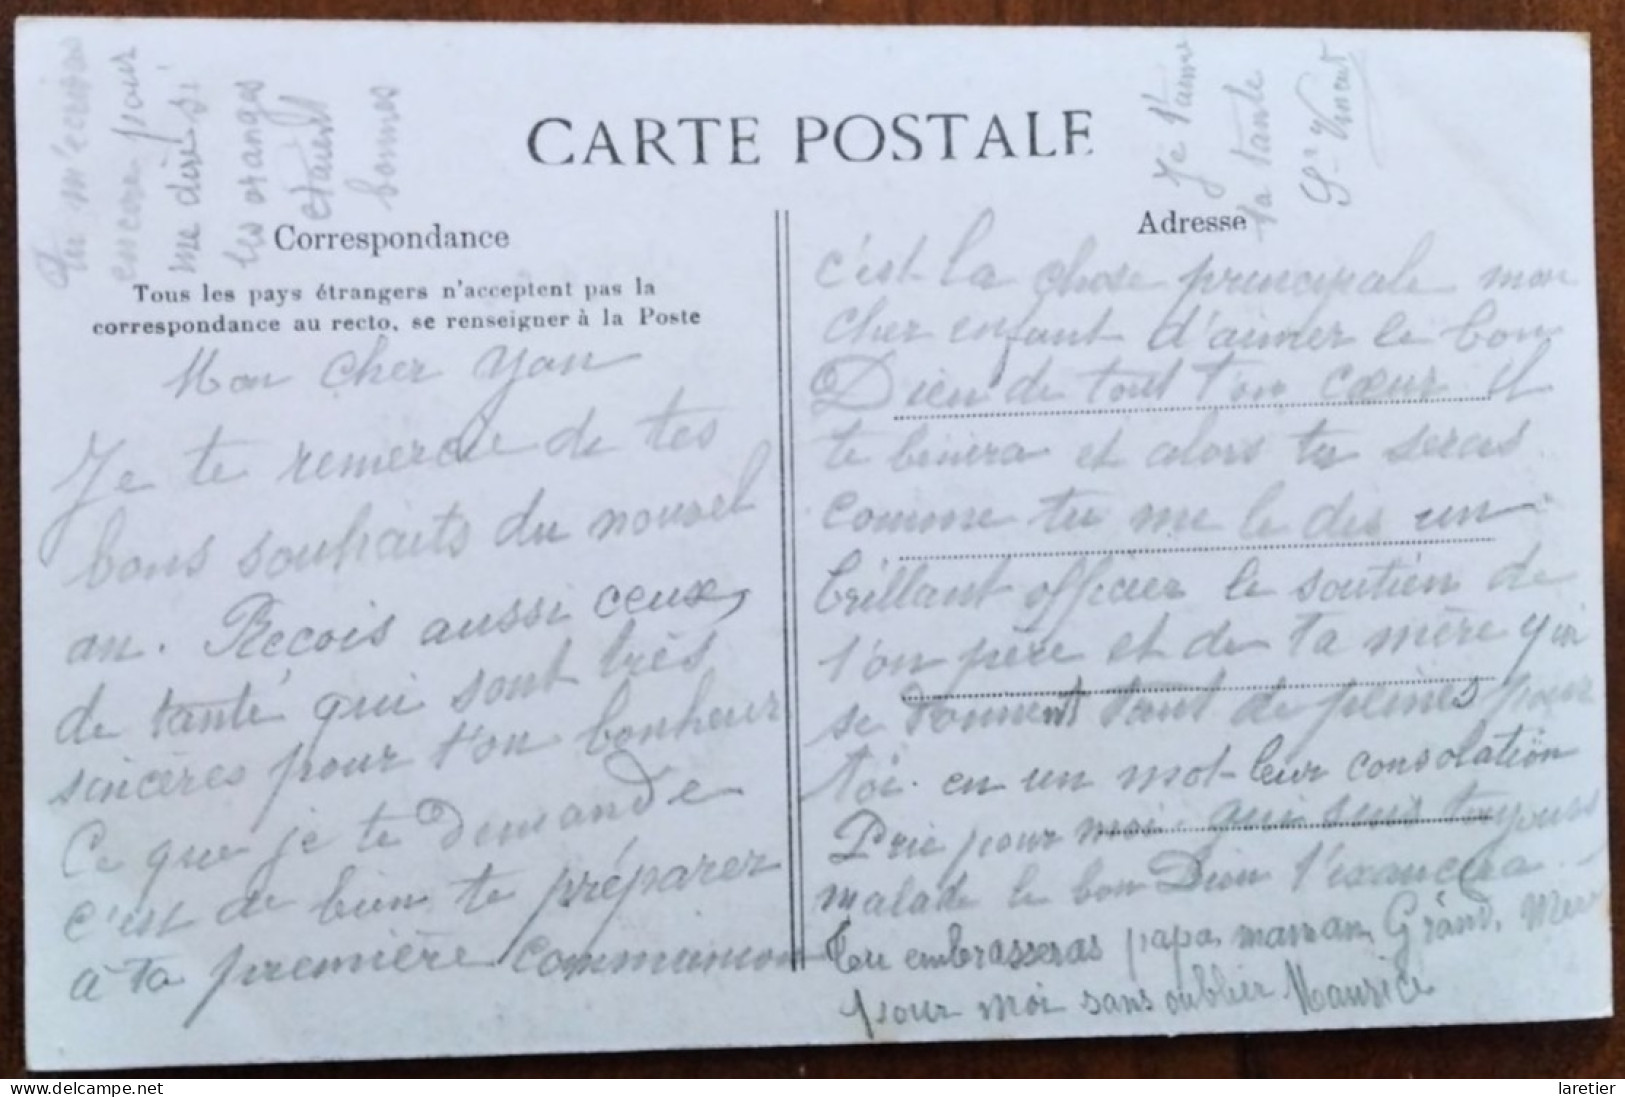 CARTE POSTALE
Correspondance
Tous les pays étrangers n'acceptent pas la
correspondance au recto, se renseigner à la Poste
Adresse
Mon cher Yan
Je te remercie de tes
bons souhaits du nouvel
an. Recois aussi ceux,
de tanté qui sont très
sincères pour t'on bonheur
Ce que je te demande
c'est de bien te préparer
à ta première communion
c'est la chose principale mon
cher enfant d'aimer le bon
Dieu de tout t'on cœur il
te benira et alors tu seras
comme tu me le dis un
brillant officier le soutien de
t'on père et de ta mère qui
se donnent tant de peines pour
toi. en un mot leur consolation
Prie pour moi qui suis toujours
malade le bon Dieu t'exaucera
Tu embrasseras papa, maman, Grand, Mère
pour moi sans oublier Maurice
Je t'aime
ta tante
St Vincent
Tu m'ecriras
encore pour
me dire si
les oranges
étaient
bonnes
laretier